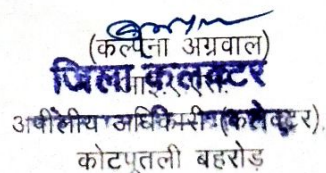 (कल्पना अग्रवाल)
जिला कलक्टर
अपीलीय अधिकारी (कलेक्टर)
कोटपूतली बहरोड़